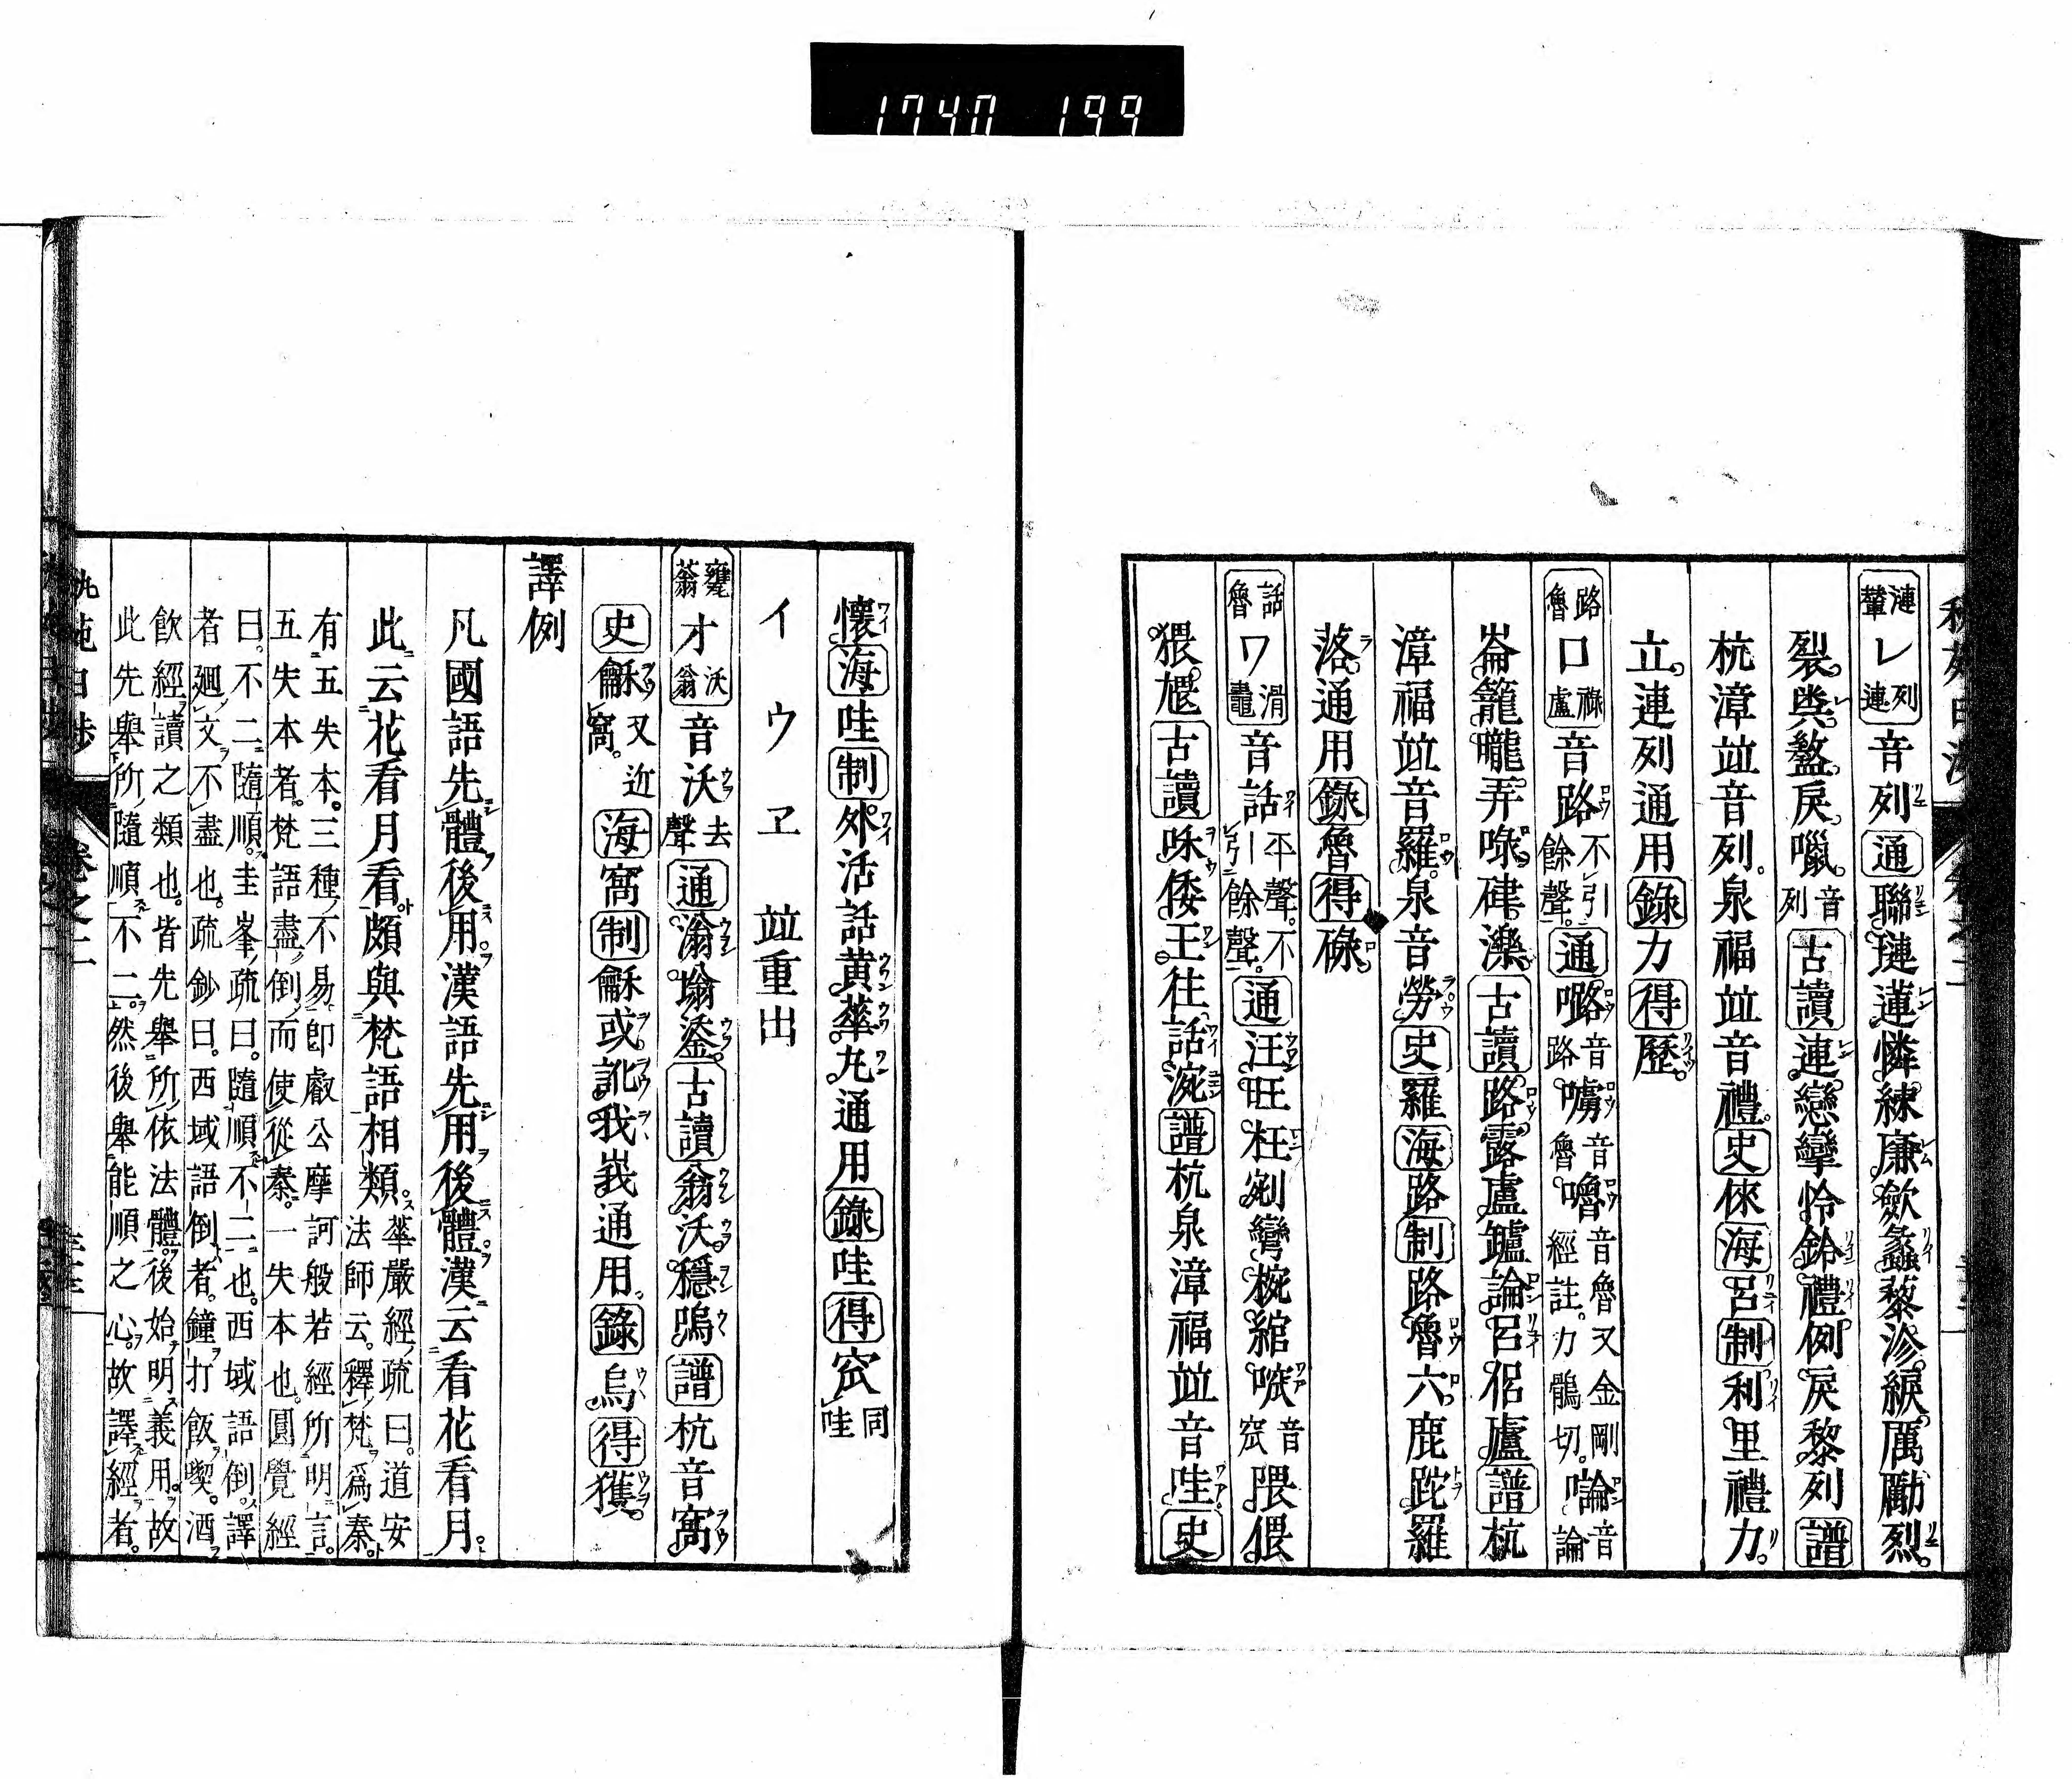 1740 199
漣輦レ列連音列通聯璉蓮憐練廉歛蠡藜沴綟厲勵烈
裂㸚盭戾囇音列古讀連戀攣怜鈴禮例戾黎列譜
杭漳竝音列泉福竝音禮史倈海呂制利里禮力
立連列通用錄力得歷
路魯ロ祿盧音路不引餘聲通㗉音路㗣音魯嚕音魯又金剛經註力鶻切噏音論
崙籠嚨弄㖨硉濼古讀路露盧鑪論呂侶廬譜杭
漳福竝音羅泉音勞史羅海路制路魯六鹿跎羅
落通用錄魯得碌
話魯ワ滑鼃音話平聲引不餘聲通汪旺枉剜彎椀綰㖳音窊隈偎
猥尯古讀呠倭王往話涴譜杭泉漳福竝音哇史
懷海哇制外活話黃華丸通用錄哇得窊同哇
イウヱ竝重出
甕蓊オ沃翁音沃去聲通滃塕鋈古讀翁沃穩嗚譜杭音窩
史龢又近窩海窩制龢或訛我峩通用錄烏得獲
譯例
凡國語先體後用漢語先用後體漢云看花看月
此云花看月看頗與梵語相類華嚴經疏曰道安法師云釋梵爲秦
有五失本三種不易卽叡公摩訶般若經所明言
五失本者梵語盡倒而使從秦一失本也圓覺經
曰不二隨順圭峯疏曰隨順不二也西域語倒譯
者廻文不盡也疏鈔曰西域語倒者鐘打飯喫酒
飮經讀之類也皆先舉所依法體後始明義用故
此先舉所隨順不二然後舉能順之心故譯經者